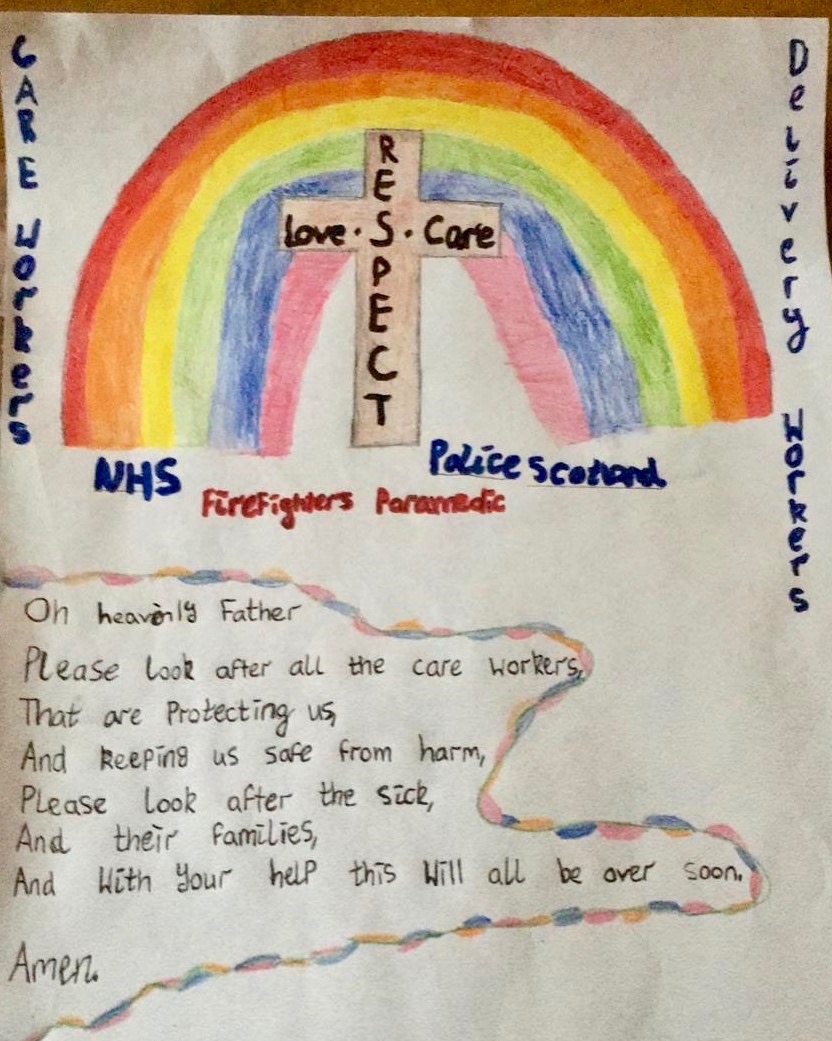 CARE Workers
Delivery Workers
RESPECT
Love · S · Care
NHS
Police Scotland
FireFighters Paramedic
Oh heavenly Father
Please look after all the care workers,
That are Protecting us,
And keeping us safe from harm,
Please look after the sick,
And their families,
And With your help this Will all be over soon.
Amen.